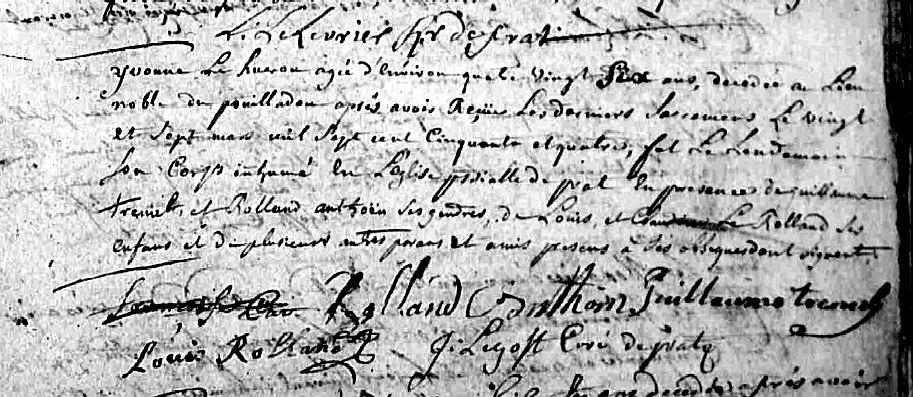 Le Levrier ptre de prat
Yvonne Le hueron agée d'environ quatre vingt Six ans, decedée au Lieu
noble de pouilladou après avoir Reçue Les derniers Sacremens Le vingt
et Sept mars mil Sept cent Cinquante et quatre, fut Le Lendemain
Son Corps inhumé En L'Eglise de prat En presence de guillaume
trement, et Rolland anthoin Ses gendres, de Louis, et Le Rolland Ses
enfans et de plusieurs autres parans et amis presens à Ses obseques dont signent
Rolland Anthoin Guillaume trement
Louis Rolland J: Legoff Curé de prat
decedée après avoir